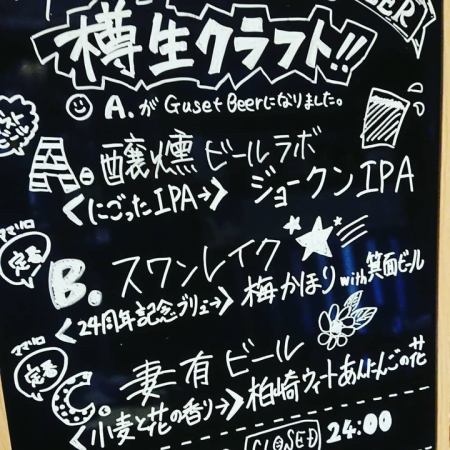 BEER
樽生クラフト!!
A.がGuset Beerになりました。
A. 醸燻ビールラボ
<にごったIPA→> ジョークンIPA
定番
B. スワンレイク
<24周年記念ブリュー→> 梅かほり with 箕面ビール
定番
C. 妻有ビール
<小麦と花の香り→> 柏崎ウィートあんにんごの花
CLOSED 24:00